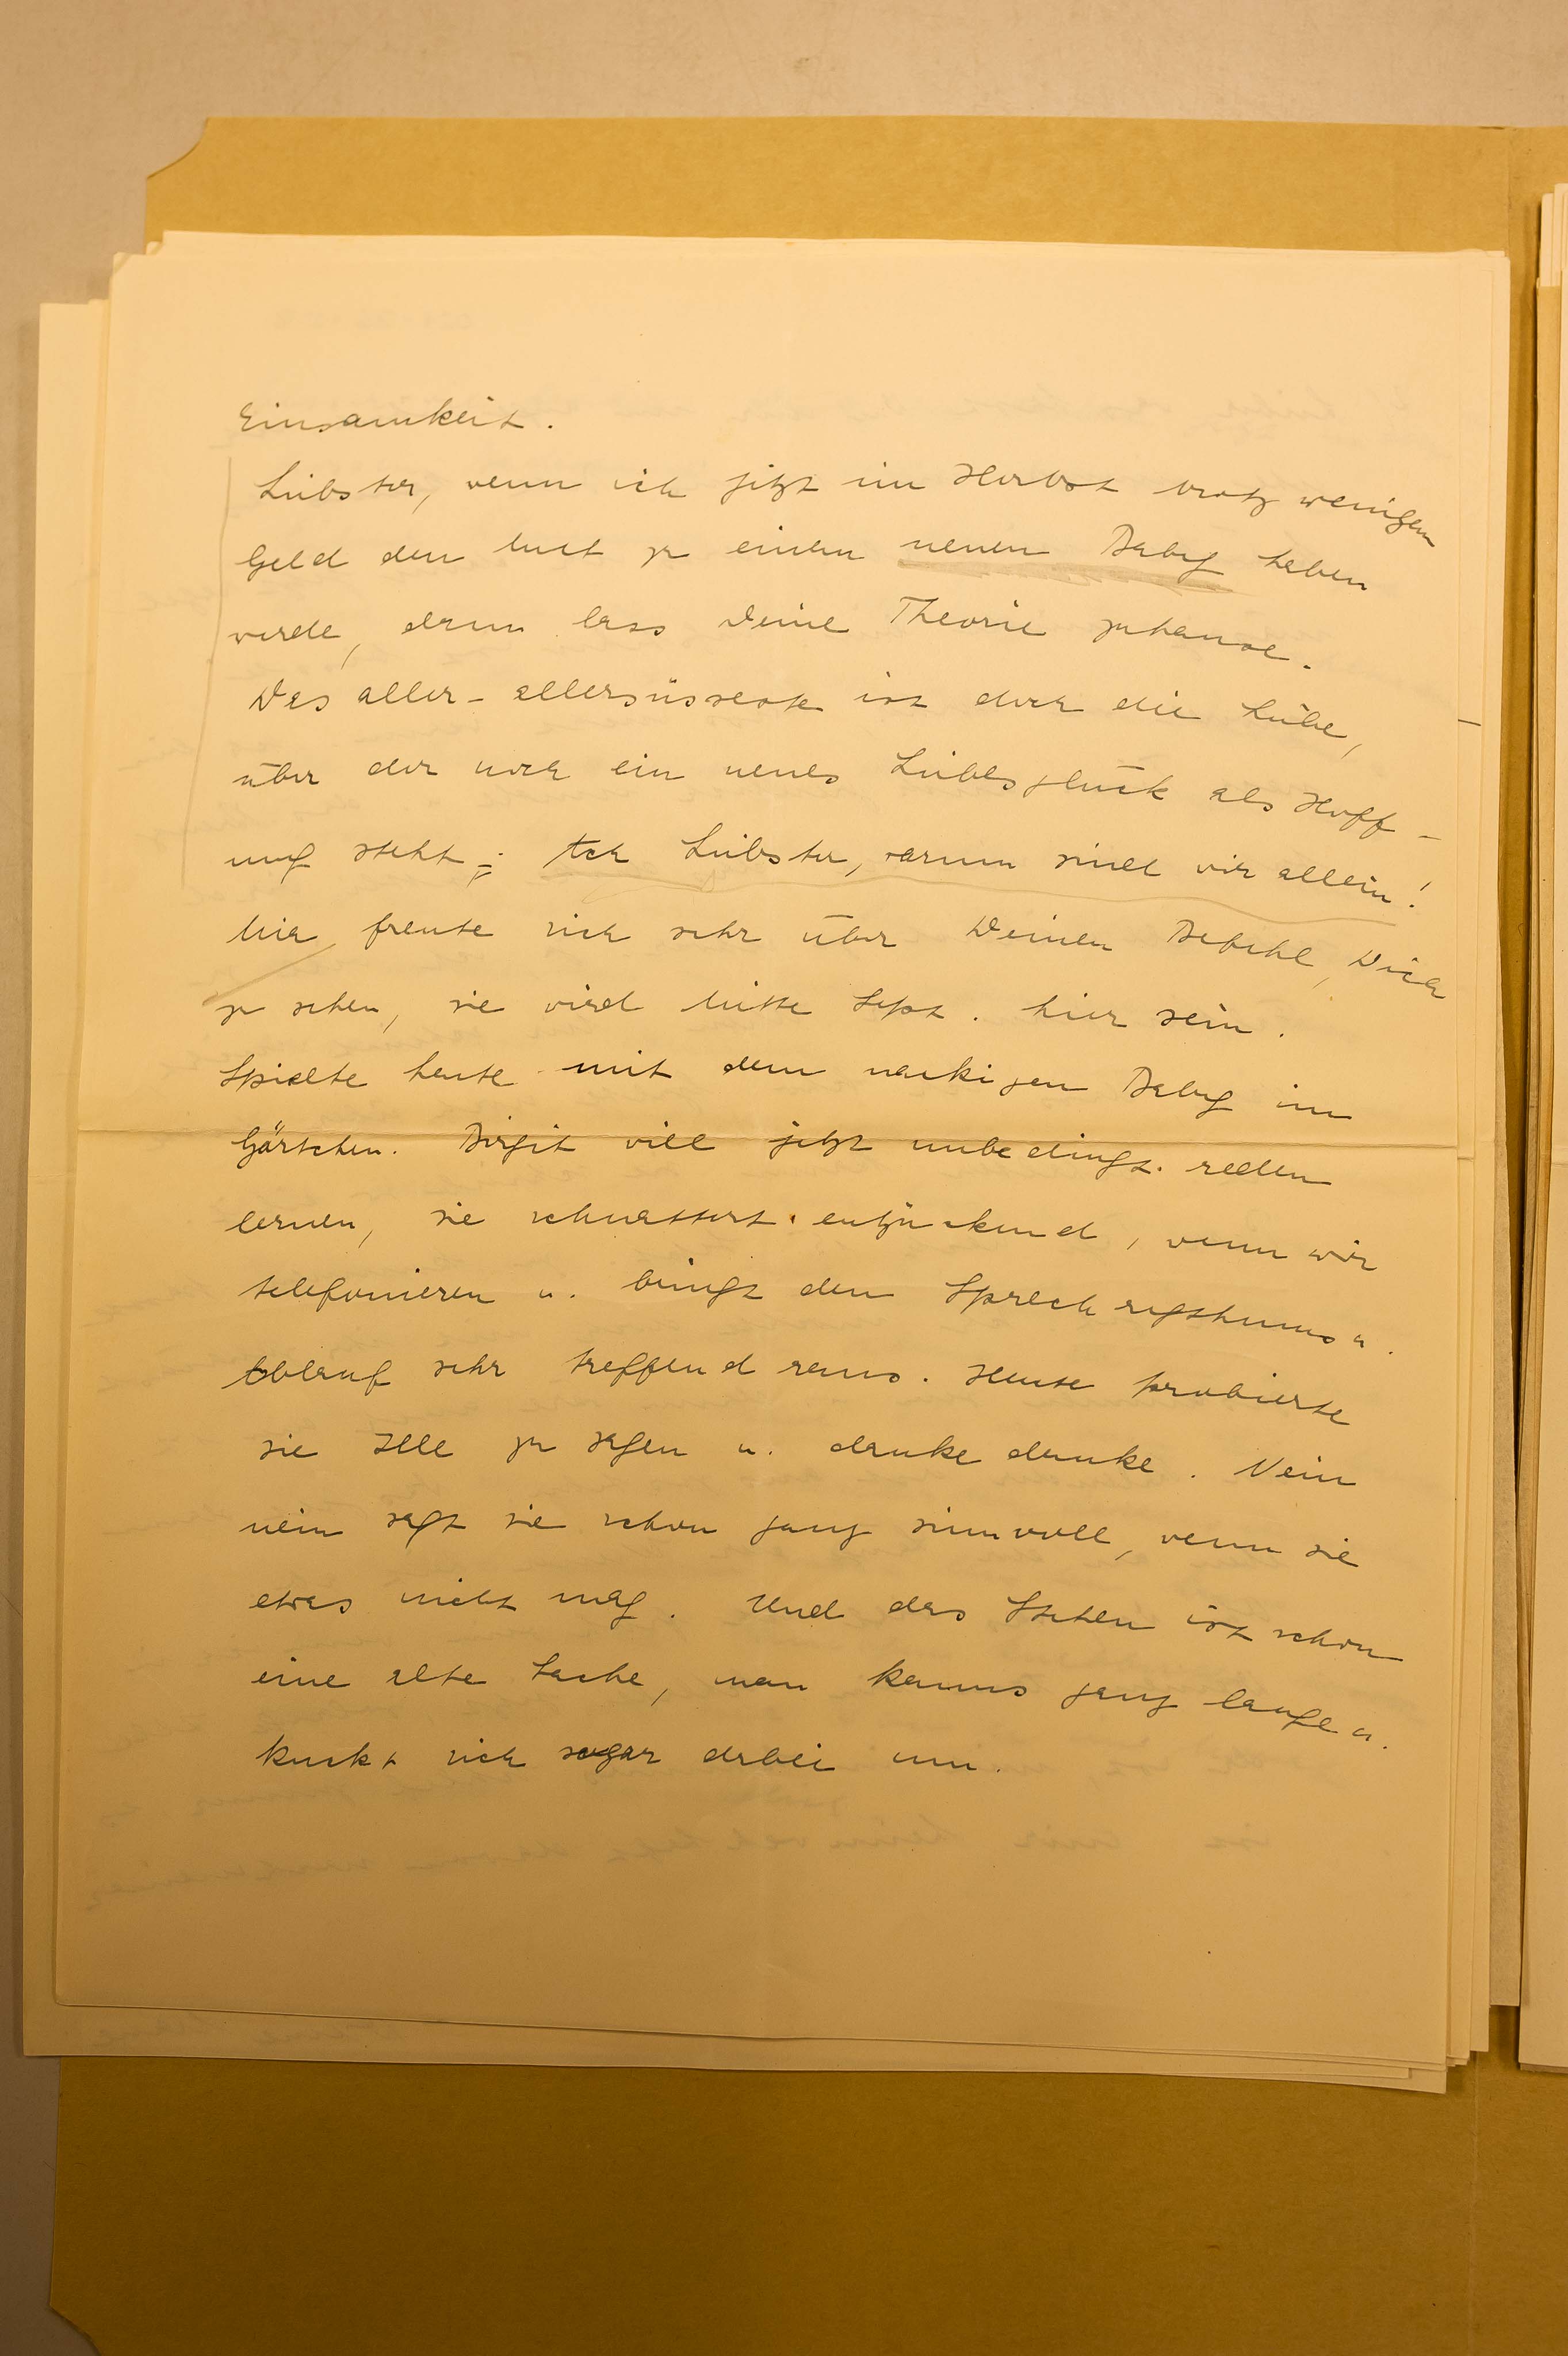 Einsamkeit.
Liebster, wenn ich jetzt im Herbst trotz wenigem
Geld den Mut zu einem neuen Baby haben
werde, dann lass Deine Theorie zuhause.
Das aller-allersüsseste ist doch die Liebe,
über der noch ein neues Liebesglück als Hoff-
nung steht; Ach Liebster, warum sind wir allein!
Mia freute sich sehr über Deinen Befehl, Dich
zu sehen, sie wird Mitte Sept. hier sein.
Spielte heute mit dem nackigen Baby im
Gärtchen. Birgit will jetzt unbedingt reden
lernen, sie schnattert entzückend, wenn wir
telefonieren u. bringt den Sprechrhythmus u.
Ablauf sehr treffend raus. Heute probierte
sie Ille zu sagen u. danke danke. Nein
nein sagt sie schon ganz sinnvoll, wenn sie
etwas nicht mag. Und das Stehen ist schon
eine alte Sache, man kanns ganz lange u.
kuckt sich sogar dabei um.